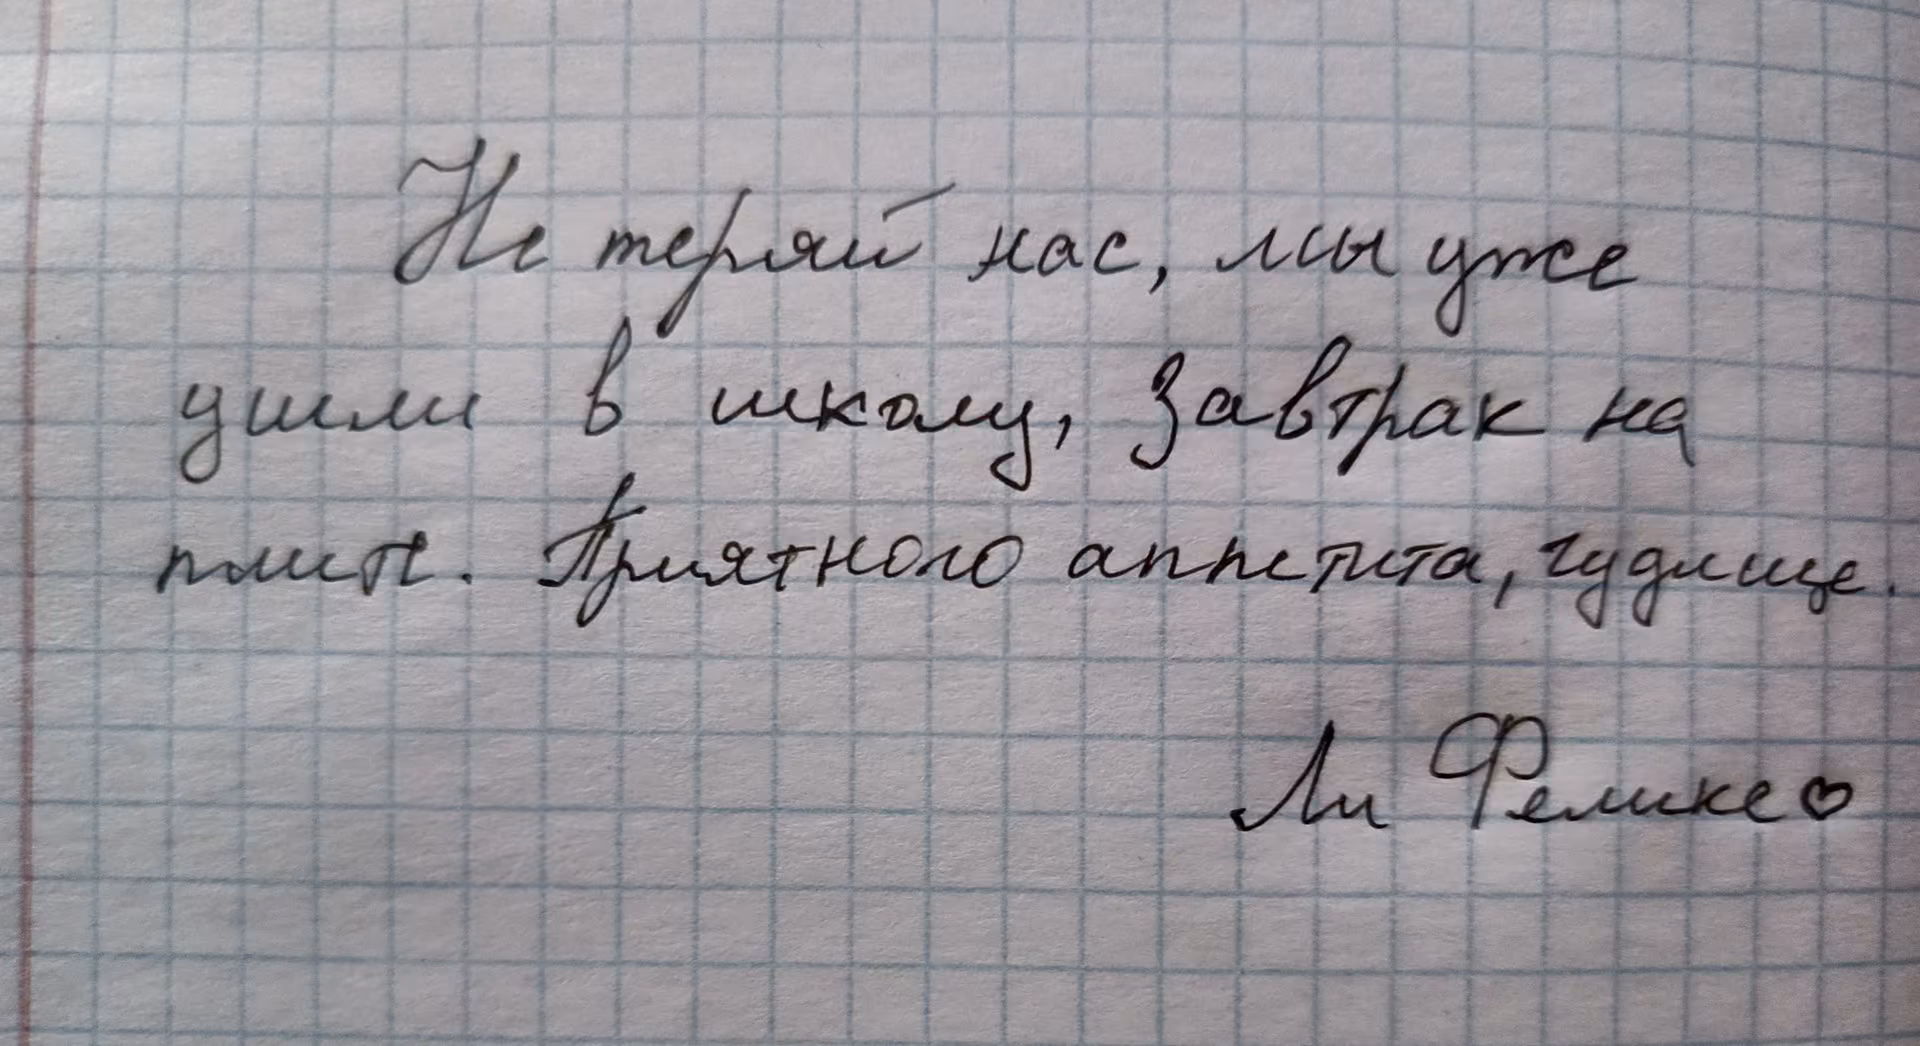 Не теряй нас, мы уже
ушли в школу, завтрак на
плите. Приятного аппетита, чудище.
Ли Феликс♡